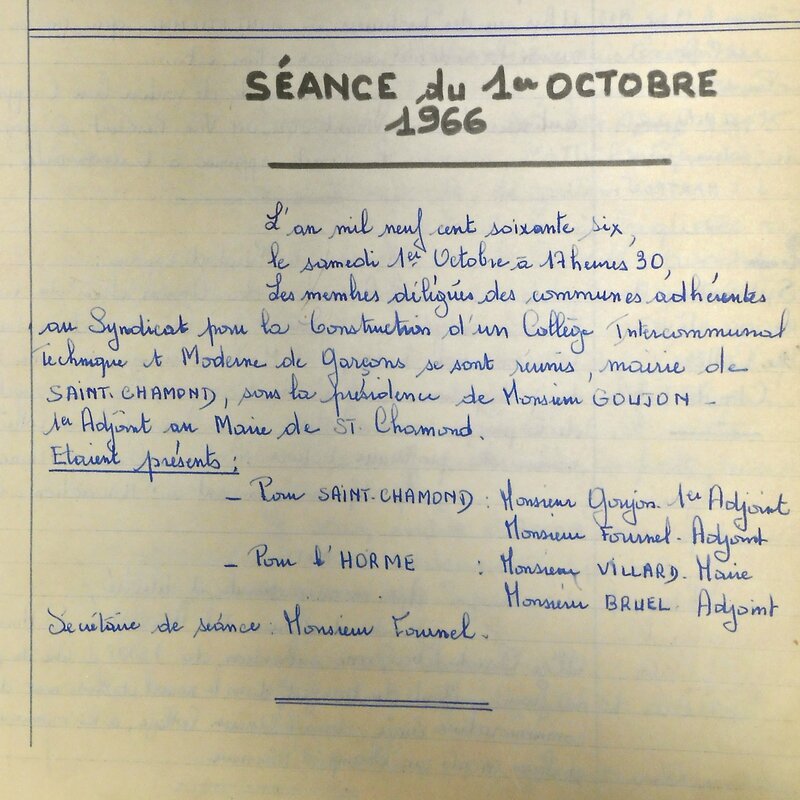 SÉANCE du 1er OCTOBRE
1966
L'an mil neuf cent soixante six,
le samedi 1er Octobre à 17 heures 30,
Les membres délégués des communes adhérentes
au Syndicat pour la Construction d'un Collège Intercommunal
Technique et Moderne de Garçons se sont réunis, mairie de
SAINT-CHAMOND, sous la présidence de Monsieur GOUJON -
1er Adjoint au Maire de ST. Chamond.
Etaient présents :
- Pour SAINT-CHAMOND : Monsieur Goujon. 1er Adjoint
Monsieur Fournel. Adjoint
- Pour l'HORME : Monsieur VILLARD. Maire
Monsieur BRUEL Adjoint
Secrétaire de séance : Monsieur Fournel.